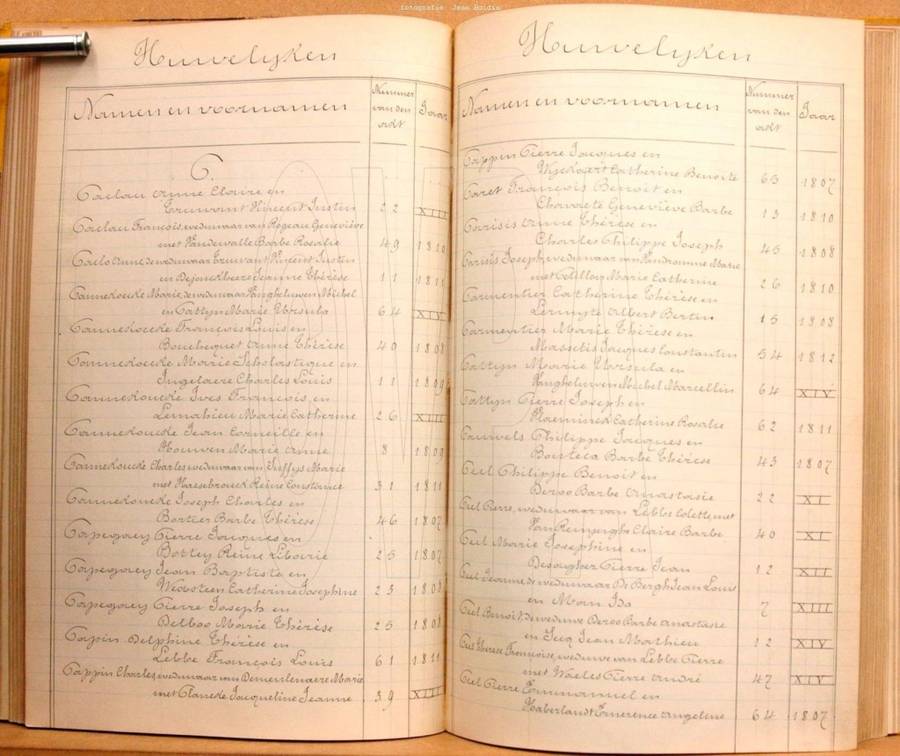 fotografie: Jean Boidin
Huwelijken
Namen en voornamen
Nummer van den act
Jaar
P.
Paelau Anne Claire en
Crunvant Vincent Justin 22 XIII
Paelau François, weduwaar van Geneviève
met Vandewalle Barbe Rosalie 49 1810
Vincent Justin
en Dejonckheere Jeanne Thérèse 11 1811
Pannekoucke Marie, Michel
en Cattyn Marie Ursula 64 XIV
Pannekoucke François Louis en
Bouchequet Anne Thérèse 40 1808
Pannekoucke Marie Scholastique en
Ingelaere Charles Louis 11 1809
Pannekoucke Ives François en
Lemahieu Marie Catherine 26 XIII
Pannekoucke Jean Corneille en
Houwen Marie Anne 8 1809
Pannekoucke Charles weduwaar van Marie
met Haesebrouck Reine Constance 31 1811
Pannekoucke Joseph Charles en
Bortier Barbe Thérèse 46 1807
Papegaey Pierre Jacques en
Bottey Reine Libarie 25 1807
Papegaey Jean Baptiste en
Catherine Josephine 23 1808
Papegaey Pierre Joseph en
Delboo Marie Thérèse 25 1808
Papin Delphine Thérèse en
Lebbe François Louis 61 1811
Pappin Charles, weduwaar van Demeulenaere Marie
met Jacqueline Jeanne 39 XIII
Huwelijken
Namen en voornamen
Nummer van den act
Jaar
Pappin Pierre Jacques en
Catherine Benoite 63 1807
Paret François Benoit en
Geneviève Barbe 13 1810
Parisis Anne Thérèse en
Charles Philippe Joseph 45 1808
Parisis Joseph, weduwaar van Vandromme Marie
met Marie Catherine 26 1810
Parmentier Catherine Thérèse en
Albert Bertin 15 1808
Parmentier Marie Thérèse en
Jacques Constantin 54 1812
Pattyn Marie Ursula en
Michel Marcellin 64 XIV
Pattyn Pierre Joseph en
Vlaeminck Catherine Rosalie 62 1811
Pauwels Philippe Jacques en
Barbe Thérèse 43 1807
Peel Philippe Benoit en
Deroo Barbe Anastasie 22 XI
Peel Pierre, weduwaar van Lebbe Colette, met
Claire Barbe 40 XI
Peel Marie Josephine en
Pierre Jean 12 XII
Peel Jeanne, de weduwaar De Bergh Jean Louis
en Ido 7 XIII
Peel Benoit, de weduwe Deroo Barbe Anastasie
en Jean Mathieu 12 XIV
Peel Thérèse Françoise, weduwe van Lebbe Pierre
met Waeles Pierre André 47 XIV
Peel Pierre Emmanuel en
Haberlandt Emerence Angeline 64 1807